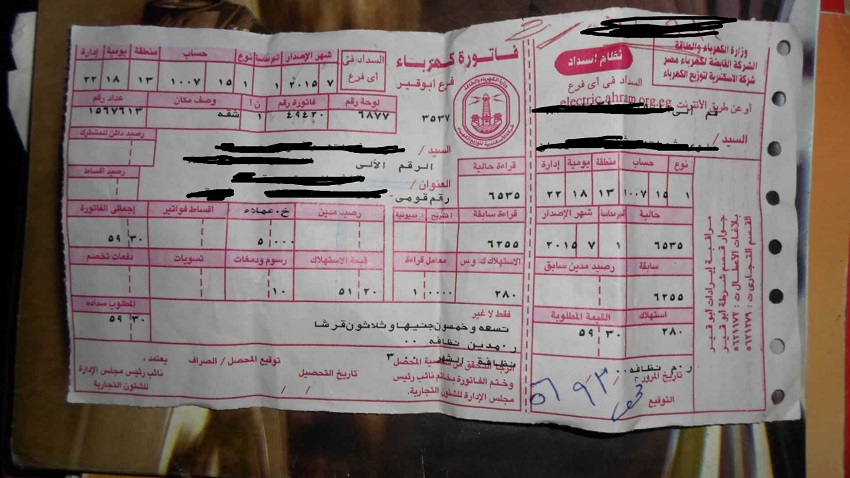 وزارة الكهرباء والطاقة
الشركة القابضة لكهرباء مصر
شركة الاسكندرية لتوزيع الكهرباء
نظام اسناد
السداد فى أى فرع
أو عن طريق الأنترنت
electric.ahram.org.eg
السيد /
نوع حساب منطقة يومية إدارة
١ ١٥ ١٠٠٧ ١٣ ١٨ ٢٢
حالية شهر الإصدار
٦٥٣٥ ١ ٧ ٢٠١٥
سابقة رصيد مدين سابق
٦٢٥٥
استهلاك القيمة المطلوبة
٢٨٠ ٥٩ ٣٠
ر.م نظافه..
تاريخ المرور
التوقيع
القسم التجارى ت: ٥٦٢١٢٧٩
بلاغات الاعطال ت: ٥٦٢١١٧٢
جوار قسم شرطة ابو قير
مراقبة إيرادات ابو قير
فاتورة كهرباء
فرع ابوقير
٣٥٣٧
السداد فى أى فرع
شهر الإصدار نوع حساب منطقة يومية إدارة
٧ ٢٠١٥ ١ ١ ١٥ ١٠٠٧ ١٣ ١٨ ٢٢
لوحة رقم فاتورة رقم ن وصف مكان عداد رقم
٦٨٧٧ ٤٩٤٢٠ ١ شقه ١٥٦٧٦١٣
السيد /
الرقم الآلى
العنوان /
رقم قومى
رصيد دائن للمشترك
رصيد اقساط
قراءة حالية
٦٥٣٥
قراءة سابقة رصيد مدين خ.عملاء اقساط فواتير إجمالى الفاتورة
٦٢٥٥ ٥ ٠٠٠ ٥٩ ٣٠
الاستهلاك ك.و.س معامل قراءة قيمة الاستهلاك رسوم ودمغات تسويات دفعات تخصم
٢٨٠ ١ ٠٠٠٠ ٥١ ٢٠ ١٠
المطلوب سداده
٥٩ ٣٠
فقط لا غير
تسعه وخمسون جنيها و ثلاثون قرشا
ر.مدين نظافه ..
نظافة الشهر ٣
وختم الفاتورة بخاتم نائب رئيس
مجلس الإدارة للشئون التجارية.
توقيع المحصل / الصراف
تاريخ التحصيل
/ /
يعتمد،
نائب رئيس مجلس الإدارة
للشئون التجارية